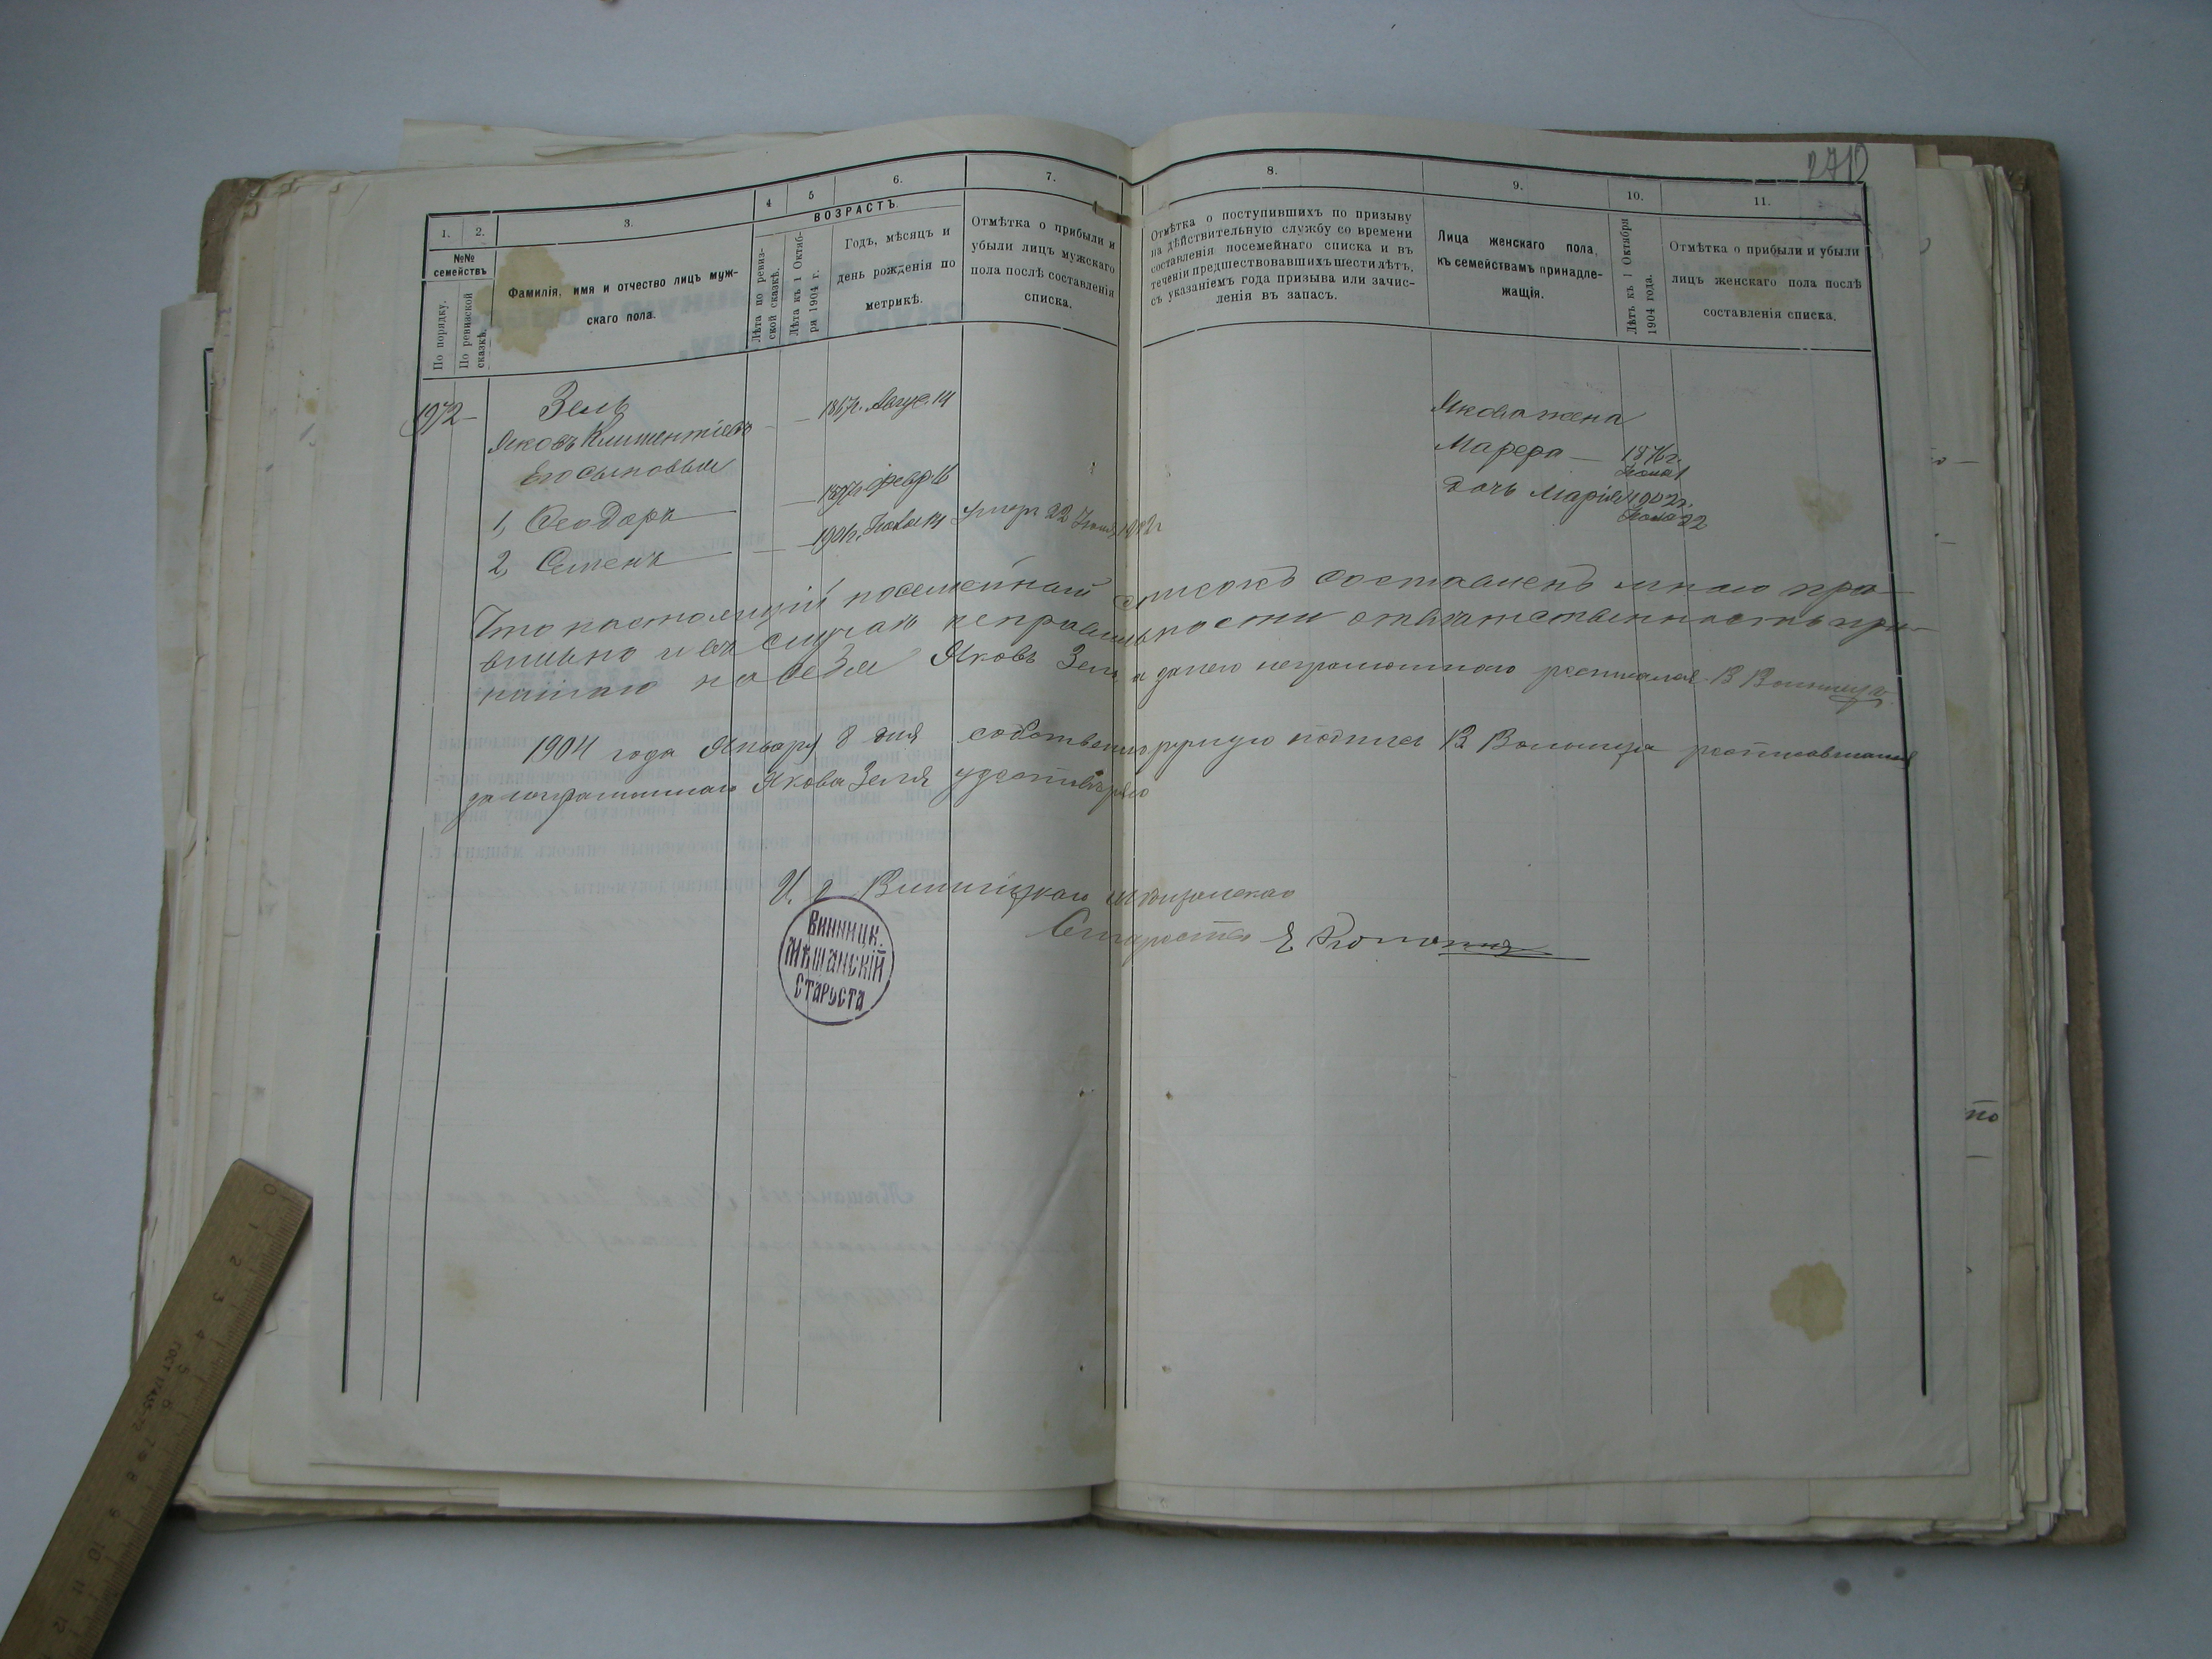 1.
2.
3.
4
5
6.
7.
8.
9.
10.
11.
№№
семействъ
По порядку.
По ревизской
сказкѣ.
Фамилія, имя и отчество лицъ муж-
скаго пола.
ВОЗРАСТЪ.
Лѣта по ревиз-
ской сказкѣ.
Лѣта къ 1 Октяб-
ря 1904 г.
Годъ, мѣсяцъ и
день рожденія по
метрикѣ.
Отмѣтка о прибыли и
убыли лицъ мужскаго
пола послѣ составленія
списка.
Отмѣтка о поступившихъ по призыву
на дѣйствительную службу со времени
составленія посемейнаго списка и въ
теченіи предшествовавшихъ шести лѣтъ,
съ указаніемъ года призыва или зачис-
ленія въ запасъ.
Лица женскаго пола,
къ семействамъ принадле-
жащія.
Лѣтъ къ 1 Октября
1904 года.
Отмѣтка о прибыли и убыли
лицъ женскаго пола послѣ
составленія списка.
1972 Зель
Яковъ Климентіевъ 1867г. Авгус. 14
Его сыновья
1, Ѳеодоръ 1897г. Февр 16
2, Семенъ 1901г. Умеръ 22
Якова жена
Марфа 1876г.
Дочь Марія 1902г.
22
Что настоящій посемейный списокъ составленъ мною пра-
вильно и въ случаѣ неправильности отвѣтственность при-
нимаю на себя Яковъ Зель а за него неграмотного росписался В
1904 года Января 8 дня собственноручную подпись В росписавшагося
за неграмотнаго Якова Зеля удостовѣряю
И. д Винницкаго мѣщанскаго
Старосты
Винницк.
Мѣщанскій
Староста
по